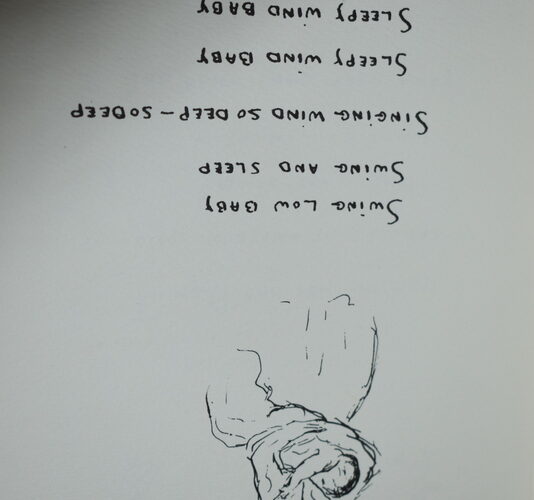 SWING LOW BABY
SWING AND SLEEP
SINGING WIND SO DEEP - SO DEEP
SLEEPY WIND BABY
SLEEPY WIND BABY